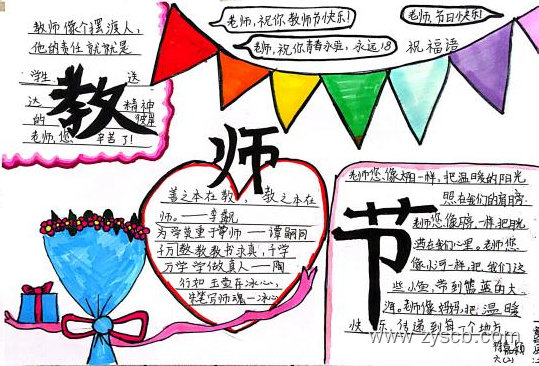 老师,祝你教师节快乐!
老师,节日快乐!
老师,祝你青春永驻,永远18
祝福语
教师像个摆渡人,
他的责任就是
学生 送
达 精神
的 彼岸
老师,您 辛苦了!
教
师
节
善之本在教, 教之本在
师。——李觏
为学莫重于尊师——谭嗣同
千万教教书求真,千学
万学学做真人——陶
行知 玉壶存冰心,
朱笔写师魂——冰心
老师您像太阳一样,把温暖的阳光
照在我们的肩膀。
老师您像 一样,把月光
洒在我们心里。老师您,
像小河一样,把我们这
些小鱼,带到蔚蓝的大
海。老师像妈妈,把温暖
快乐,传递到每一个地方
www.zyscb.com
六(2)